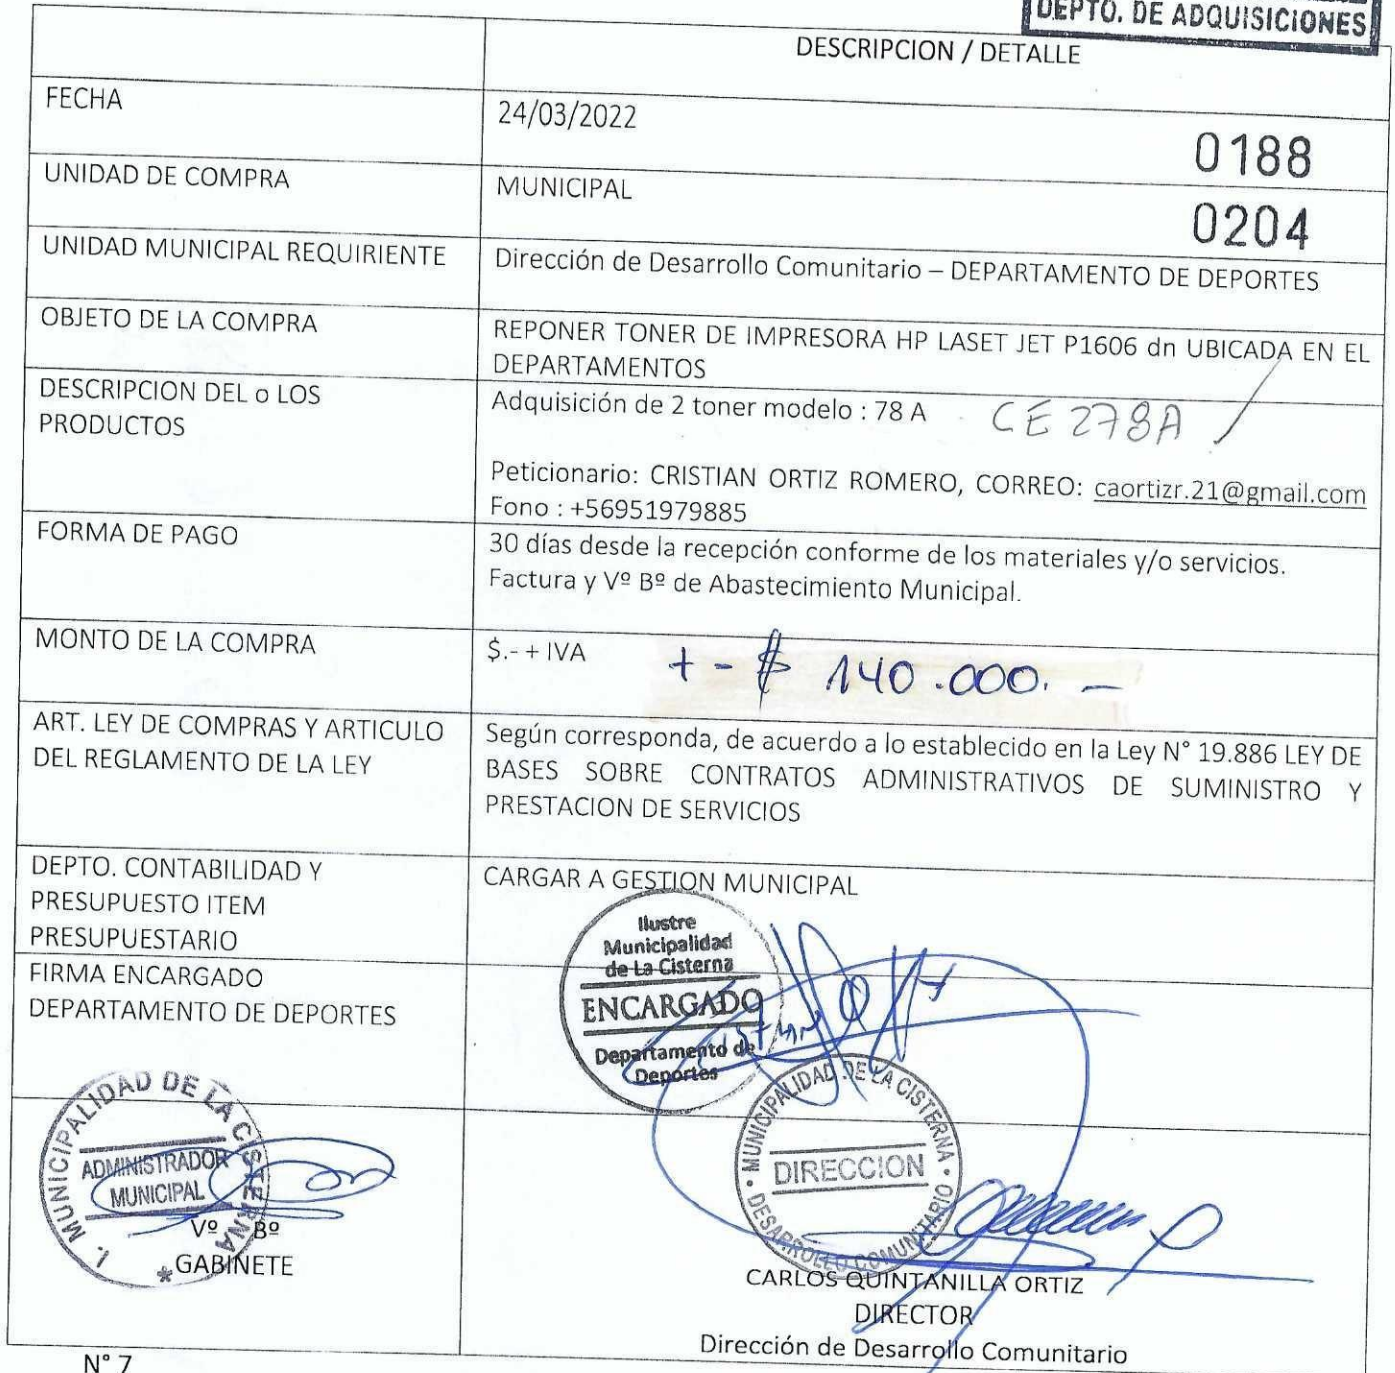 DEPTO. DE ADQUISICIONES
DESCRIPCION / DETALLE
FECHA
24/03/2022
0188
UNIDAD DE COMPRA
MUNICIPAL
0204
UNIDAD MUNICIPAL REQUIRIENTE
Dirección de Desarrollo Comunitario – DEPARTAMENTO DE DEPORTES
OBJETO DE LA COMPRA
REPONER TONER DE IMPRESORA HP LASET JET P1606 dn UBICADA EN EL
DEPARTAMENTOS
DESCRIPCION DEL o LOS
PRODUCTOS
Adquisición de 2 toner modelo : 78 A
CE 278A
Peticionario: CRISTIAN ORTIZ ROMERO, CORREO: caortizr.21@gmail.com
Fono : +56951979885
FORMA DE PAGO
30 días desde la recepción conforme de los materiales y/o servicios.
Factura y Vº Bº de Abastecimiento Municipal.
MONTO DE LA COMPRA
$.- + IVA
+ - $ 140.000.-
ART. LEY DE COMPRAS Y ARTICULO
DEL REGLAMENTO DE LA LEY
Según corresponda, de acuerdo a lo establecido en la Ley N° 19.886 LEY DE
BASES SOBRE CONTRATOS ADMINISTRATIVOS DE SUMINISTRO Y
PRESTACION DE SERVICIOS
DEPTO. CONTABILIDAD Y
PRESUPUESTO ITEM
PRESUPUESTARIO
CARGAR A GESTION MUNICIPAL
FIRMA ENCARGADO
DEPARTAMENTO DE DEPORTES
Ilustre
Municipalidad
de La Cisterna
ENCARGADO
Departamento de
Deportes
I. MUNICIPALIDAD DE LA CISTERNA
ADMINISTRADOR
MUNICIPAL
Vº Bº
GABINETE
MUNICIPALIDAD DE LA CISTERNA
DIRECCION
DESARROLLO COMUNITARIO
CARLOS QUINTANILLA ORTIZ
DIRECTOR
Dirección de Desarrollo Comunitario
N° 7